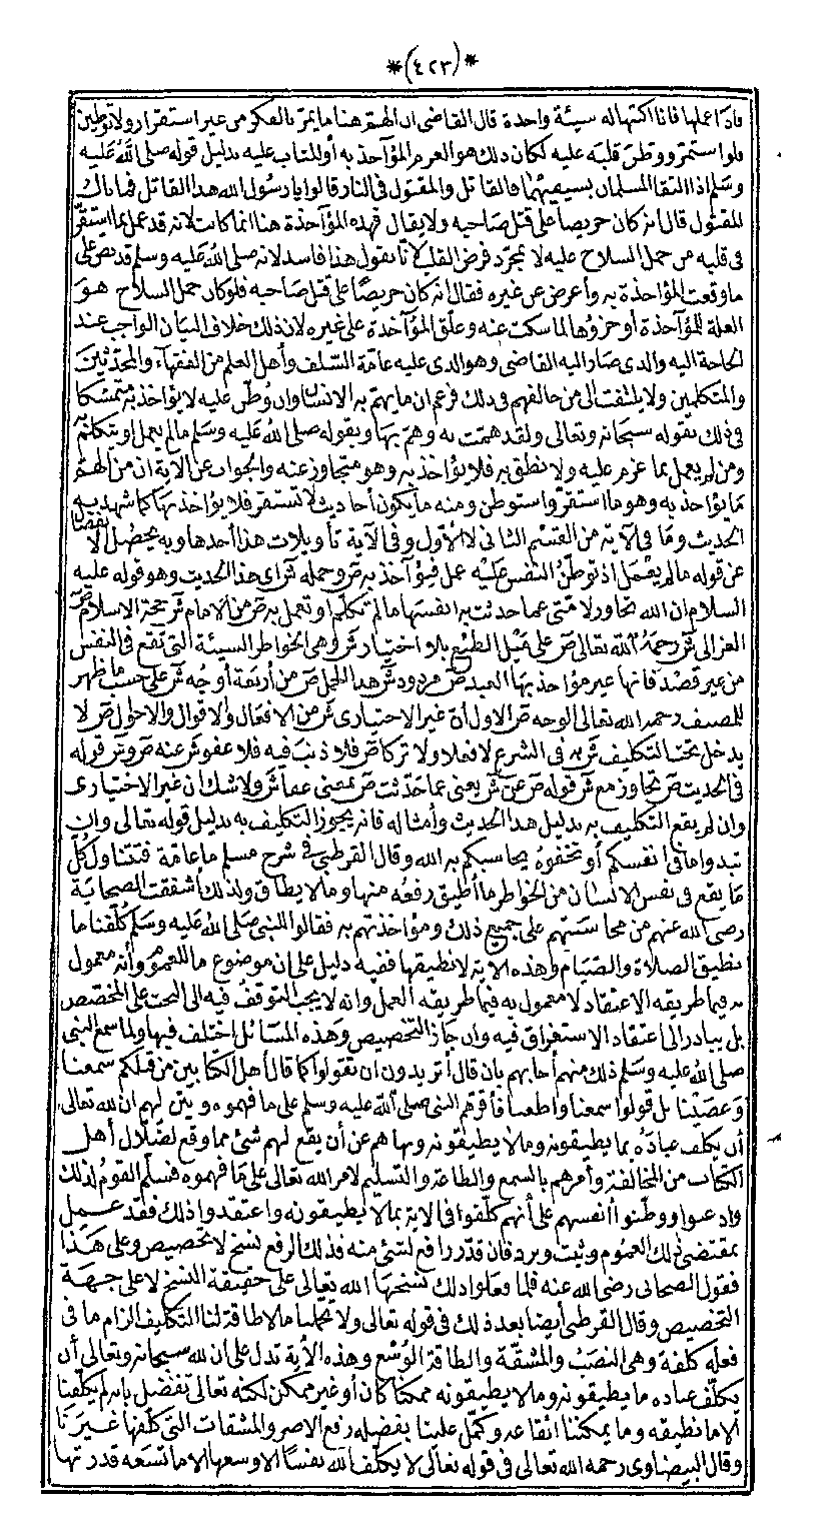 *(٤٢٣)*
فاذا عملها فانا اكتبها له سيئة واحدة قال القاضى ان الهم هنا ما يمر بالفكر من غير استقرار ولا توطين
فلو استمر ووطن قلبه عليه لكان ذلك هو العزم المؤآخذ به أو المثاب عليه بدليل قوله صلى الله عليه
وسلم اذا التقا المسلمان بسيفيهما فالقاتل والمقتول فى النار قالوا يا رسول الله هذا القاتل فما بال
المقتول قال انه كان حريصا على قتل صاحبه ولا يقال فهذه المؤآخذة هنا انما كانت لانه قد عمل بما استقر
فى قلبه من حمل السلاح عليه لا بمجرد فرض القلب لانا نقول هذا فاسد لانه صلى الله عليه وسلم قد نص على
ما وقعت المؤاخذة به وأعرض عن غيره فقال انه كان حريصا على قتل صاحبه فلو كان حمل السلاح هو
العلة للمؤآخذة أو جزؤها لما سكت عنه وعلق المؤآخذة على غيره لان ذلك خلاف البيان الواجب عند
الحاجة اليه والذى صار اليه القاضى وهو الذى عليه عامة السلف وأهل العلم من الفقهاء والمحدثين
والمتكلمين ولا يلتفت الى من خالفهم فى ذلك فزعم ان ما يهم به الانسان وان وطن عليه لا يؤاخذ به متمسكا
فى ذلك بقوله سبحانه وتعالى ولقد همت به وهم بها وبقوله صلى الله عليه وسلم ما لم يعمل او يتكلم به
ومن لم يعمل بما عزم عليه ولا نطق به فلا يؤاخذ به وهو متجاوز عنه والجواب عن الآية ان من الهم
ما يؤاخذ به وهو ما استقر واستوطن ومنه ما يكون أحاديث لا تستقر فلا يؤاخذ بها كما شهد به
الحديث وما فى الآية من القسم الثانى لا الأول وفى الآية تأويلات هذا أحدها وبه يحصل الانفصال
عن قوله ما لم يعمل اذ توطن النفس عليه عمل فيؤآخذ به ص وحمله ش اى هذا الحديث وهو قوله عليه
السلام ان الله تجاوز لامتى عما حدثت به انفسها ما لم تتكلم او تعمل به ص من الامام ش حجة الاسلام ص
الغزالى ش رحمه الله تعالى ص على ميل الطبع بلا اختيار ش وهى الخواطر السيئة التى تقع فى النفس
من غير قصد فانها غير مؤاخذ بها العبد ص مردود ش هذا الحمل ص من أربعة أوجه ش على حسب ما ظهر
للمصنف رحمه الله تعالى الوجه ص الاول أن غير الاختيارى ش من الافعال والاقوال والاحوال ص لا
يدخل تحت التكليف ش به فى الشرع لا فعلا ولا تركا ص فلا ذنب فيه فلا عفو ش عنه ص و ش قوله
فى الحديث ص تجاوز مع ش قوله ص عن ش يعنى عما حدثت ص بمعنى عفا ش ولا شك ان غير الاختيارى
وان لم يقع التكليف به بدليل هذا الحديث وأمثاله فانه يجوز التكليف به بدليل قوله تعالى وان
تبدوا ما فى انفسكم أو تخفوه يحاسبكم به الله وقال القرطبى فى شرح مسلم ما عامة فتتناول كل
ما يقع فى نفس الانسان من الخواطر ما أطيق رفعه منها وما لا يطاق ولذلك أشفقت الصحابة
رضى الله عنهم من محاسبتهم على جميع ذلك ومؤاخذتهم به فقالوا للنبى صلى الله عليه وسلم كلفنا ما
نطيق الصلاة والصيام وهذه الاية لا نطيقها ففيه دليل على ان موضوع ما للعموم وأنه معمول
به فيما طريقه الاعتقاد لا معمول به فيما طريقه العمل وانه لا يجب التوقف فيه الى البحث على المخصص
بل يبادر الى اعتقاد الاستغراق فيه وان جاز التخصيص وهذه المسائل اختلف فيها ولما سمع النبى
صلى الله عليه وسلم ذلك منهم أجابهم بان قال أتريدون ان تقولوا كما قال أهل الكتابين من قبلكم سمعنا
وعصينا بل قولوا سمعنا واطعنا فأقرهم النبى صلى الله عليه وسلم على ما فهموه وبين لهم ان لله تعالى
أن يكلف عباده بما يطيقونه وما لا يطيقونه ونهاهم عن أن يقع لهم شئ مما وقع لضلال أهل
الكتاب من المخالفة وأمرهم بالسمع والطاعة والتسليم لامر الله تعالى على ما فهموه فسلم القوم لذلك
واذعنوا ووطنوا أنفسهم على أنهم كلفوا فى الاية بما لا يطيقونه واعتقدوا ذلك فقد عمل
بمقتضى ذلك العموم وثبت وبرد فان قدر رافع لشئ منه فذلك الرفع نسخ لا تخصيص وعلى هذا
فقول الصحابى رضى الله عنه فلما فعلوا ذلك نسخها الله تعالى على حقيقة النسخ لا على جهة
التخصيص وقال القرطبى أيضا بعد ذلك فى قوله تعالى ولا تحملنا ما لا طاقة لنا التكليف الزام ما فى
فعله كلفة وهى النصب والمشقة والطاقة الوسع وهذه الآية تدل على ان لله سبحانه وتعالى أن
يكلف عباده ما يطيقونه وما لا يطيقونه ممكنا كان أو غير ممكن لكنه تعالى تفضل بانه لم يكلفنا
الا ما نطيقه وما يمكننا ايقاعه وكمل علينا بفضله رفع الاصر والمشقات التى كلفها غيرنا
وقال البيضاوى رحمه الله تعالى فى قوله تعالى لا يكلف الله نفسا الا وسعها الا ما تسعه قدرتها